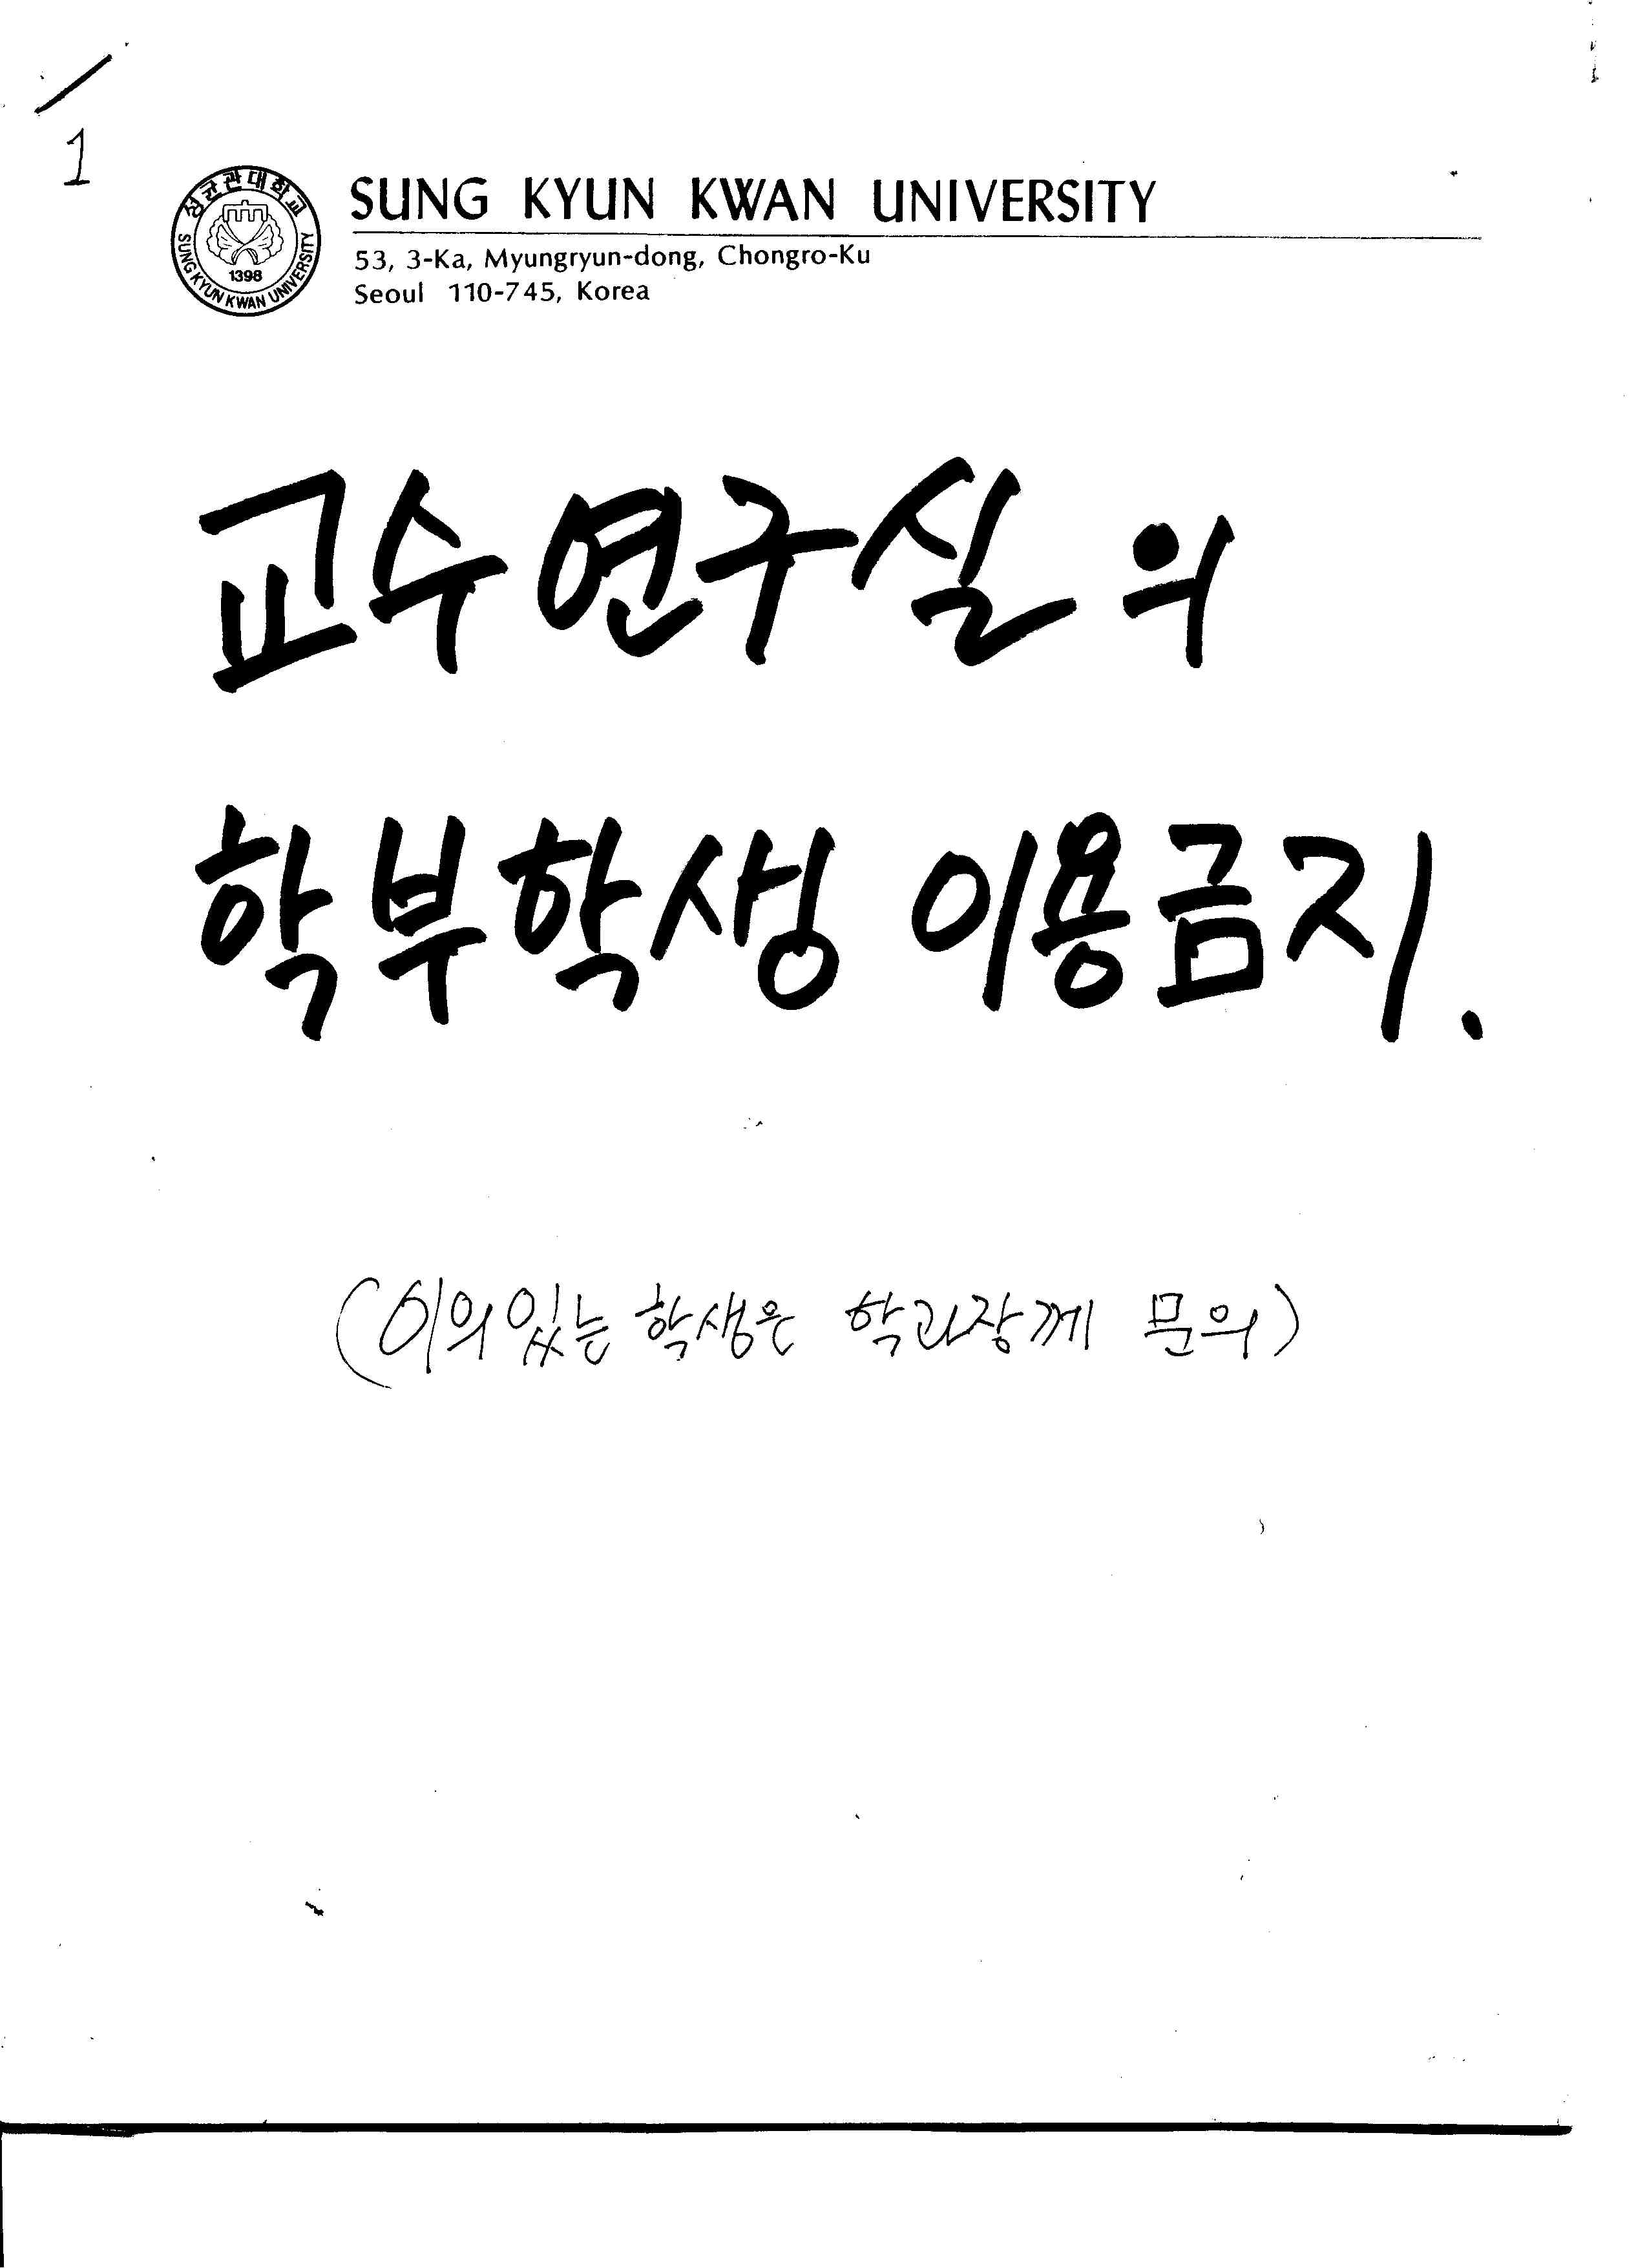 1
성균관대학교
1398
SUNG KYUN KWAN UNIVERSITY
SUNG KYUN KWAN UNIVERSITY
53, 3-Ka, Myungryun-dong, Chongro-Ku
Seoul 110-745, Korea
교수연구실의
학부학생 이용금지.
(이의있는 학생은 학과장께 문의)